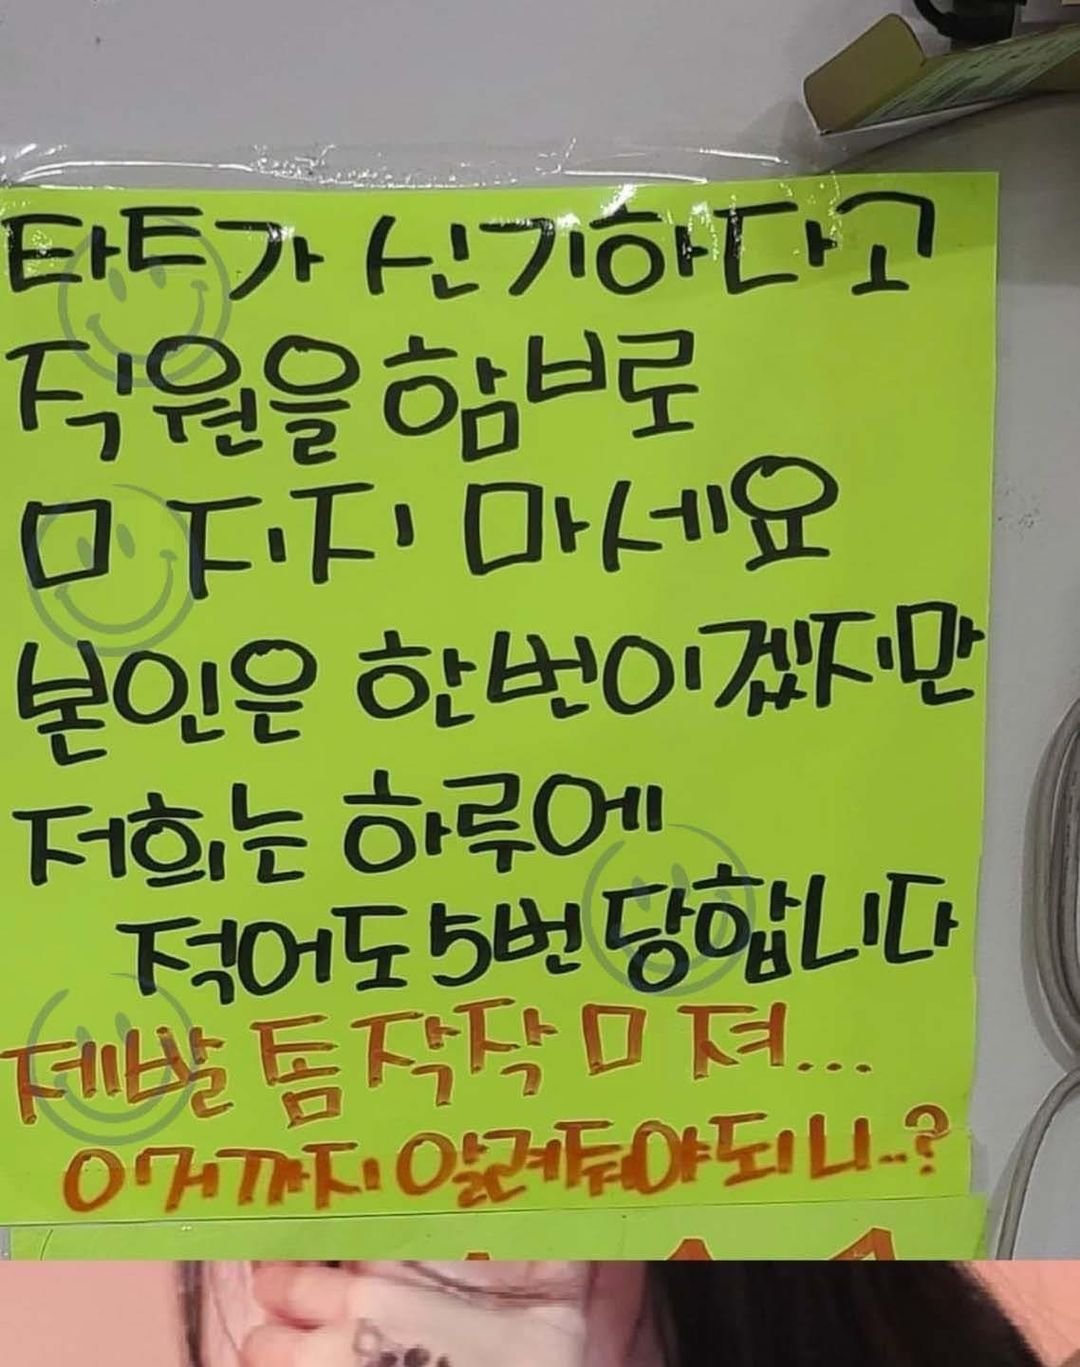 타투가 신기하다고
직원을 함ㅂ로
ㅁ지지 마세요
본인은 한번이겠지만
저희는 하루에
적어도 5번 당합니다
제발 톰 작작 ㅁ져...
이거까지 알려둬야되니..?